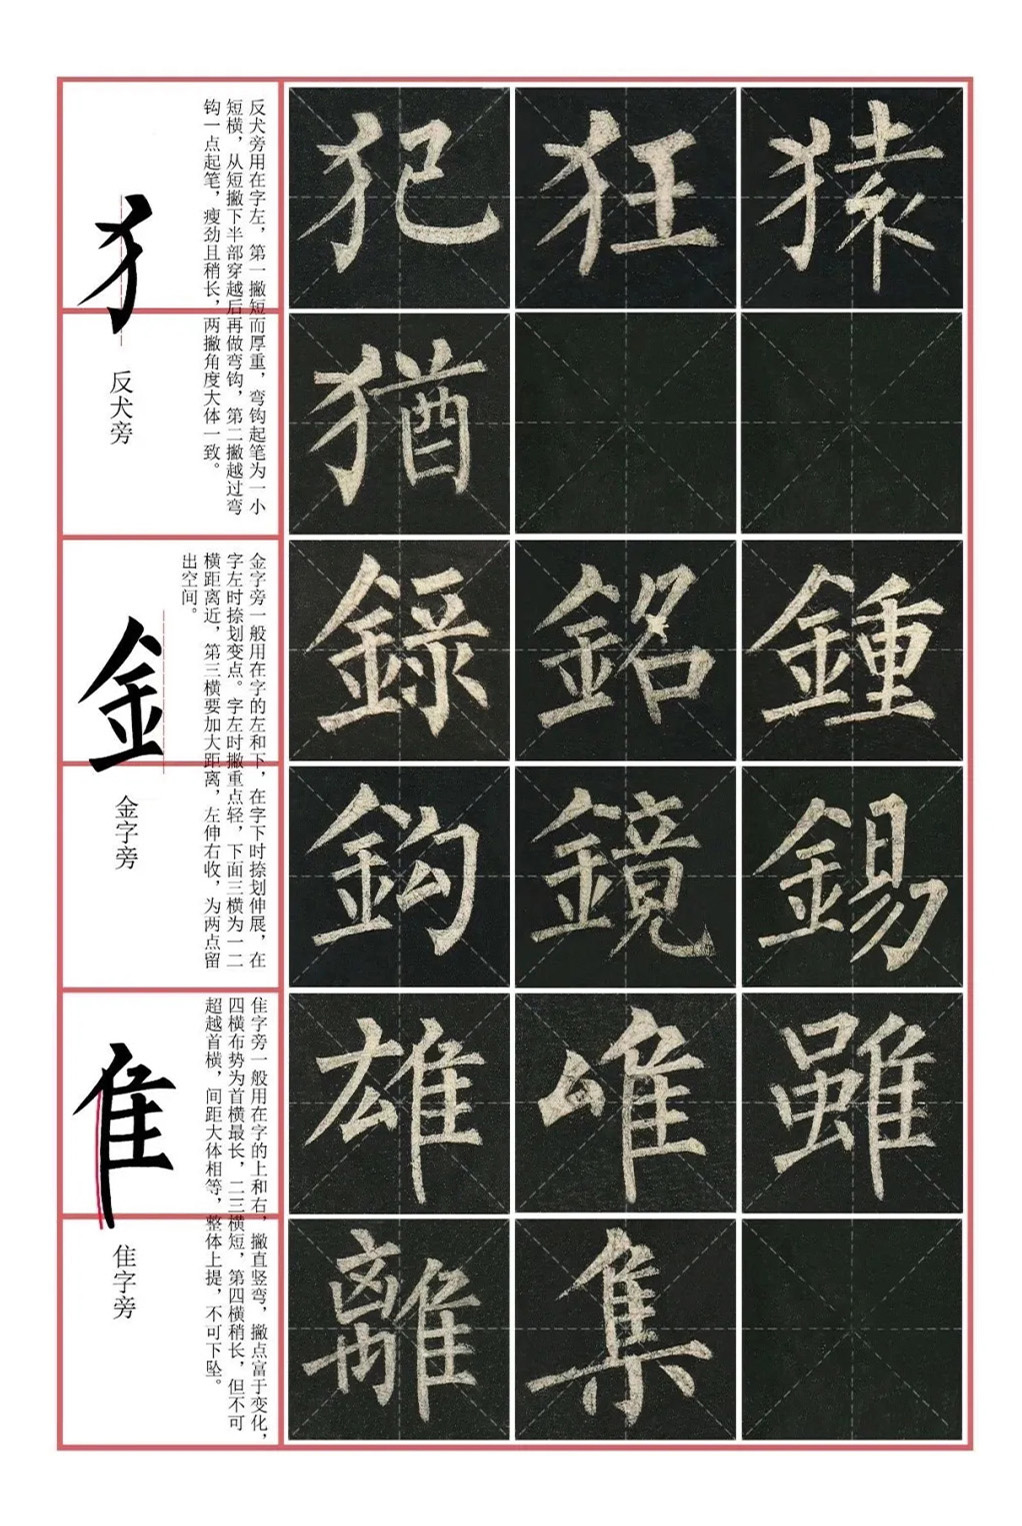 犭
反犬旁
反犬旁用在字左，第一撇短而厚重，弯钩起笔为一小
短横，从短撇下半部穿越后再做弯钩，第二撇越过弯
钩一点起笔，瘦劲且稍长，两撇角度大体一致。
犯 狂 猿
猶
金
金字旁
金字旁一般用在字的左和下，在字下时捺划伸展，在
字左时捺划变点。字左时撇重点轻，下面三横为一二
横距离近，第三横要加大距离，左伸右收，为两点留
出空间。
錄 銘 鍾
鈎 鏡 錫
隹
隹字旁
隹字旁一般用在字的上和右，撇直竖弯，撇点富于变化，
四横布势为首横最长，二三横短，第四横稍长，但不可
超越首横，间距大体相等，整体上提，不可下坠。
雄 唯 雖
離 集